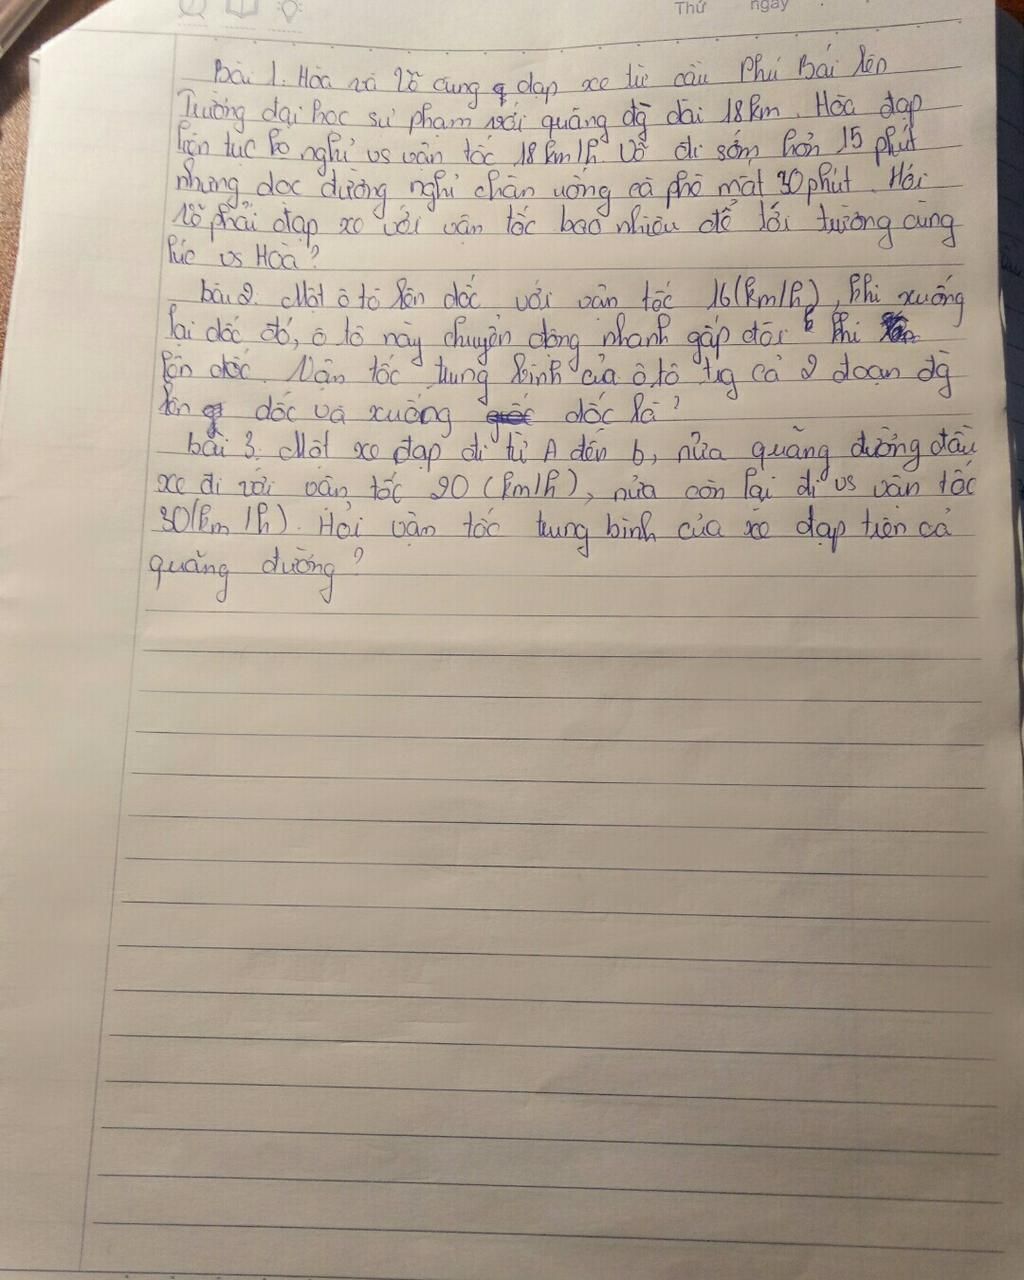 Thứ ngày
Bài 1. Hòa và Võ cùng đạp xe từ cầu Phú Bài lên
Trường đại học sư phạm với quãng đg dài 18km. Hòa đạp
liên tục ko nghỉ vs vận tốc 18km/h. Võ đi sớm hơn 15 phút
nhưng dọc đường nghỉ chân uống cà phê mất 30phút. Hỏi
Võ phải đạp xe với vận tốc bao nhiêu để tới trường cùng
lúc vs Hòa?
bài 2. Một ô tô lên dốc với vận tốc 16(km/h), khi xuống
lại dốc đó, ô tô này chuyển động nhanh gấp đôi khi
lên dốc. Vận tốc trung bình của ô tô trg cả 2 đoạn đg
lên dốc và xuống dốc là?
bài 3. Một xe đạp đi từ A đến b, nửa quãng đường đầu
xe đi với vận tốc 20 (km/h), nửa còn lại đi vs vận tốc
30(km/h). Hỏi vận tốc trung bình của xe đạp trên cả
quãng đường?